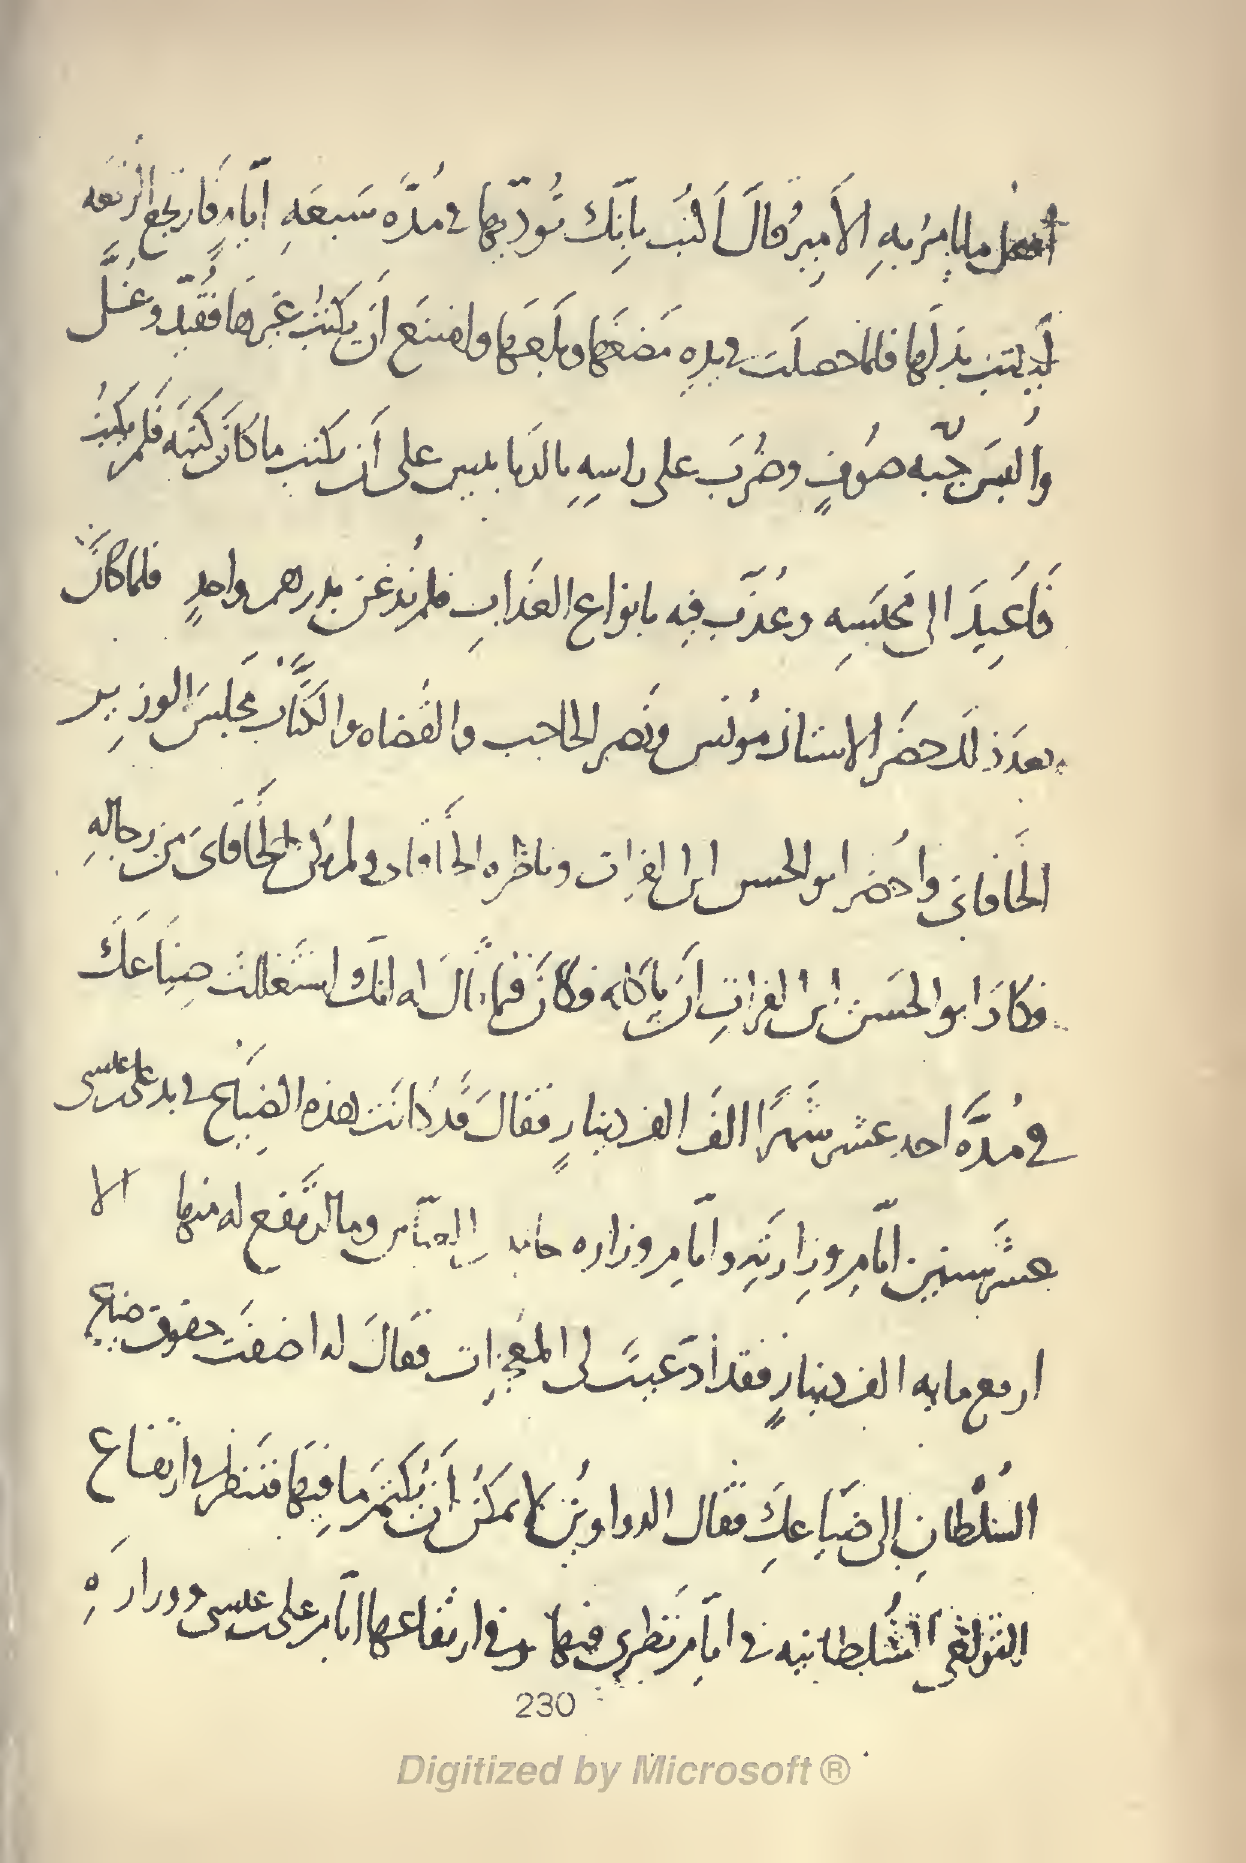 أفعل ما يامرُ به الأميرُ قالَ اكتُب بانّك تُودّيها في مُدَّه سَبعَهِ ايّامٍ فارتجع الرُقعه
ليكتب بدلَها فلما حصلَت في يده مَضَغَها وبلَعَها وامتنَع أن يكتبُ غيَرها فقُيّد وغُلَّ
وأُلبسَ جبّه صُوفٍ وضُربَ على راسِهِ بالدبابيس على أن يكتب ما كانَ كتبَه فلم يكتبُ
فأُعِيدَ الى محبَسِه وعُذّب فيه بانواع العَذابِ فلم يُذعن بدرهم واحدٍ فلما كانَ
بعدَ ذلك حضَر الاستاذ مؤنس ونَصر الحاجب والقُضاه والكتَّاب مجلسَ الوزير
الخَاقاني وأُحضر ابو الحسن ابن الفرات وناظره الخاقاني ولم يكن الخاقاني من رجالهِ
فكادَ ابو الحسَن ابن الفراتِ أن ياكله فكانَ فيما قالَ له انّك استَغللتَ ضِيَاعَكَ
في مُدَّه احد عشر شهرًا الفَ الف دينارٍ فقالَ قد كانَت هذه الضِيَاع في يد على بن عيسى
عشَر سنين ايّام وزارتِه وايّام وزاره حامد بن العبّاس وما ارتَفع له منها الا
اربع مايه الف دينارٍ فقد ادّعيتَ لى المعجزات فقالَ له اضفتَ حقوق ضياع
السُلطانِ الى ضيَاعكَ فقال الدواوينُ لا يمكنُ أن يُكتَمَ ما فيهَا فتنظر في ارتفاع
النواحي السُلطانيه في ايّام نَظرى فيها وفي ارتفاعها ايّام على بن عيسى ووزارهِ
230
Digitized by Microsoft ®